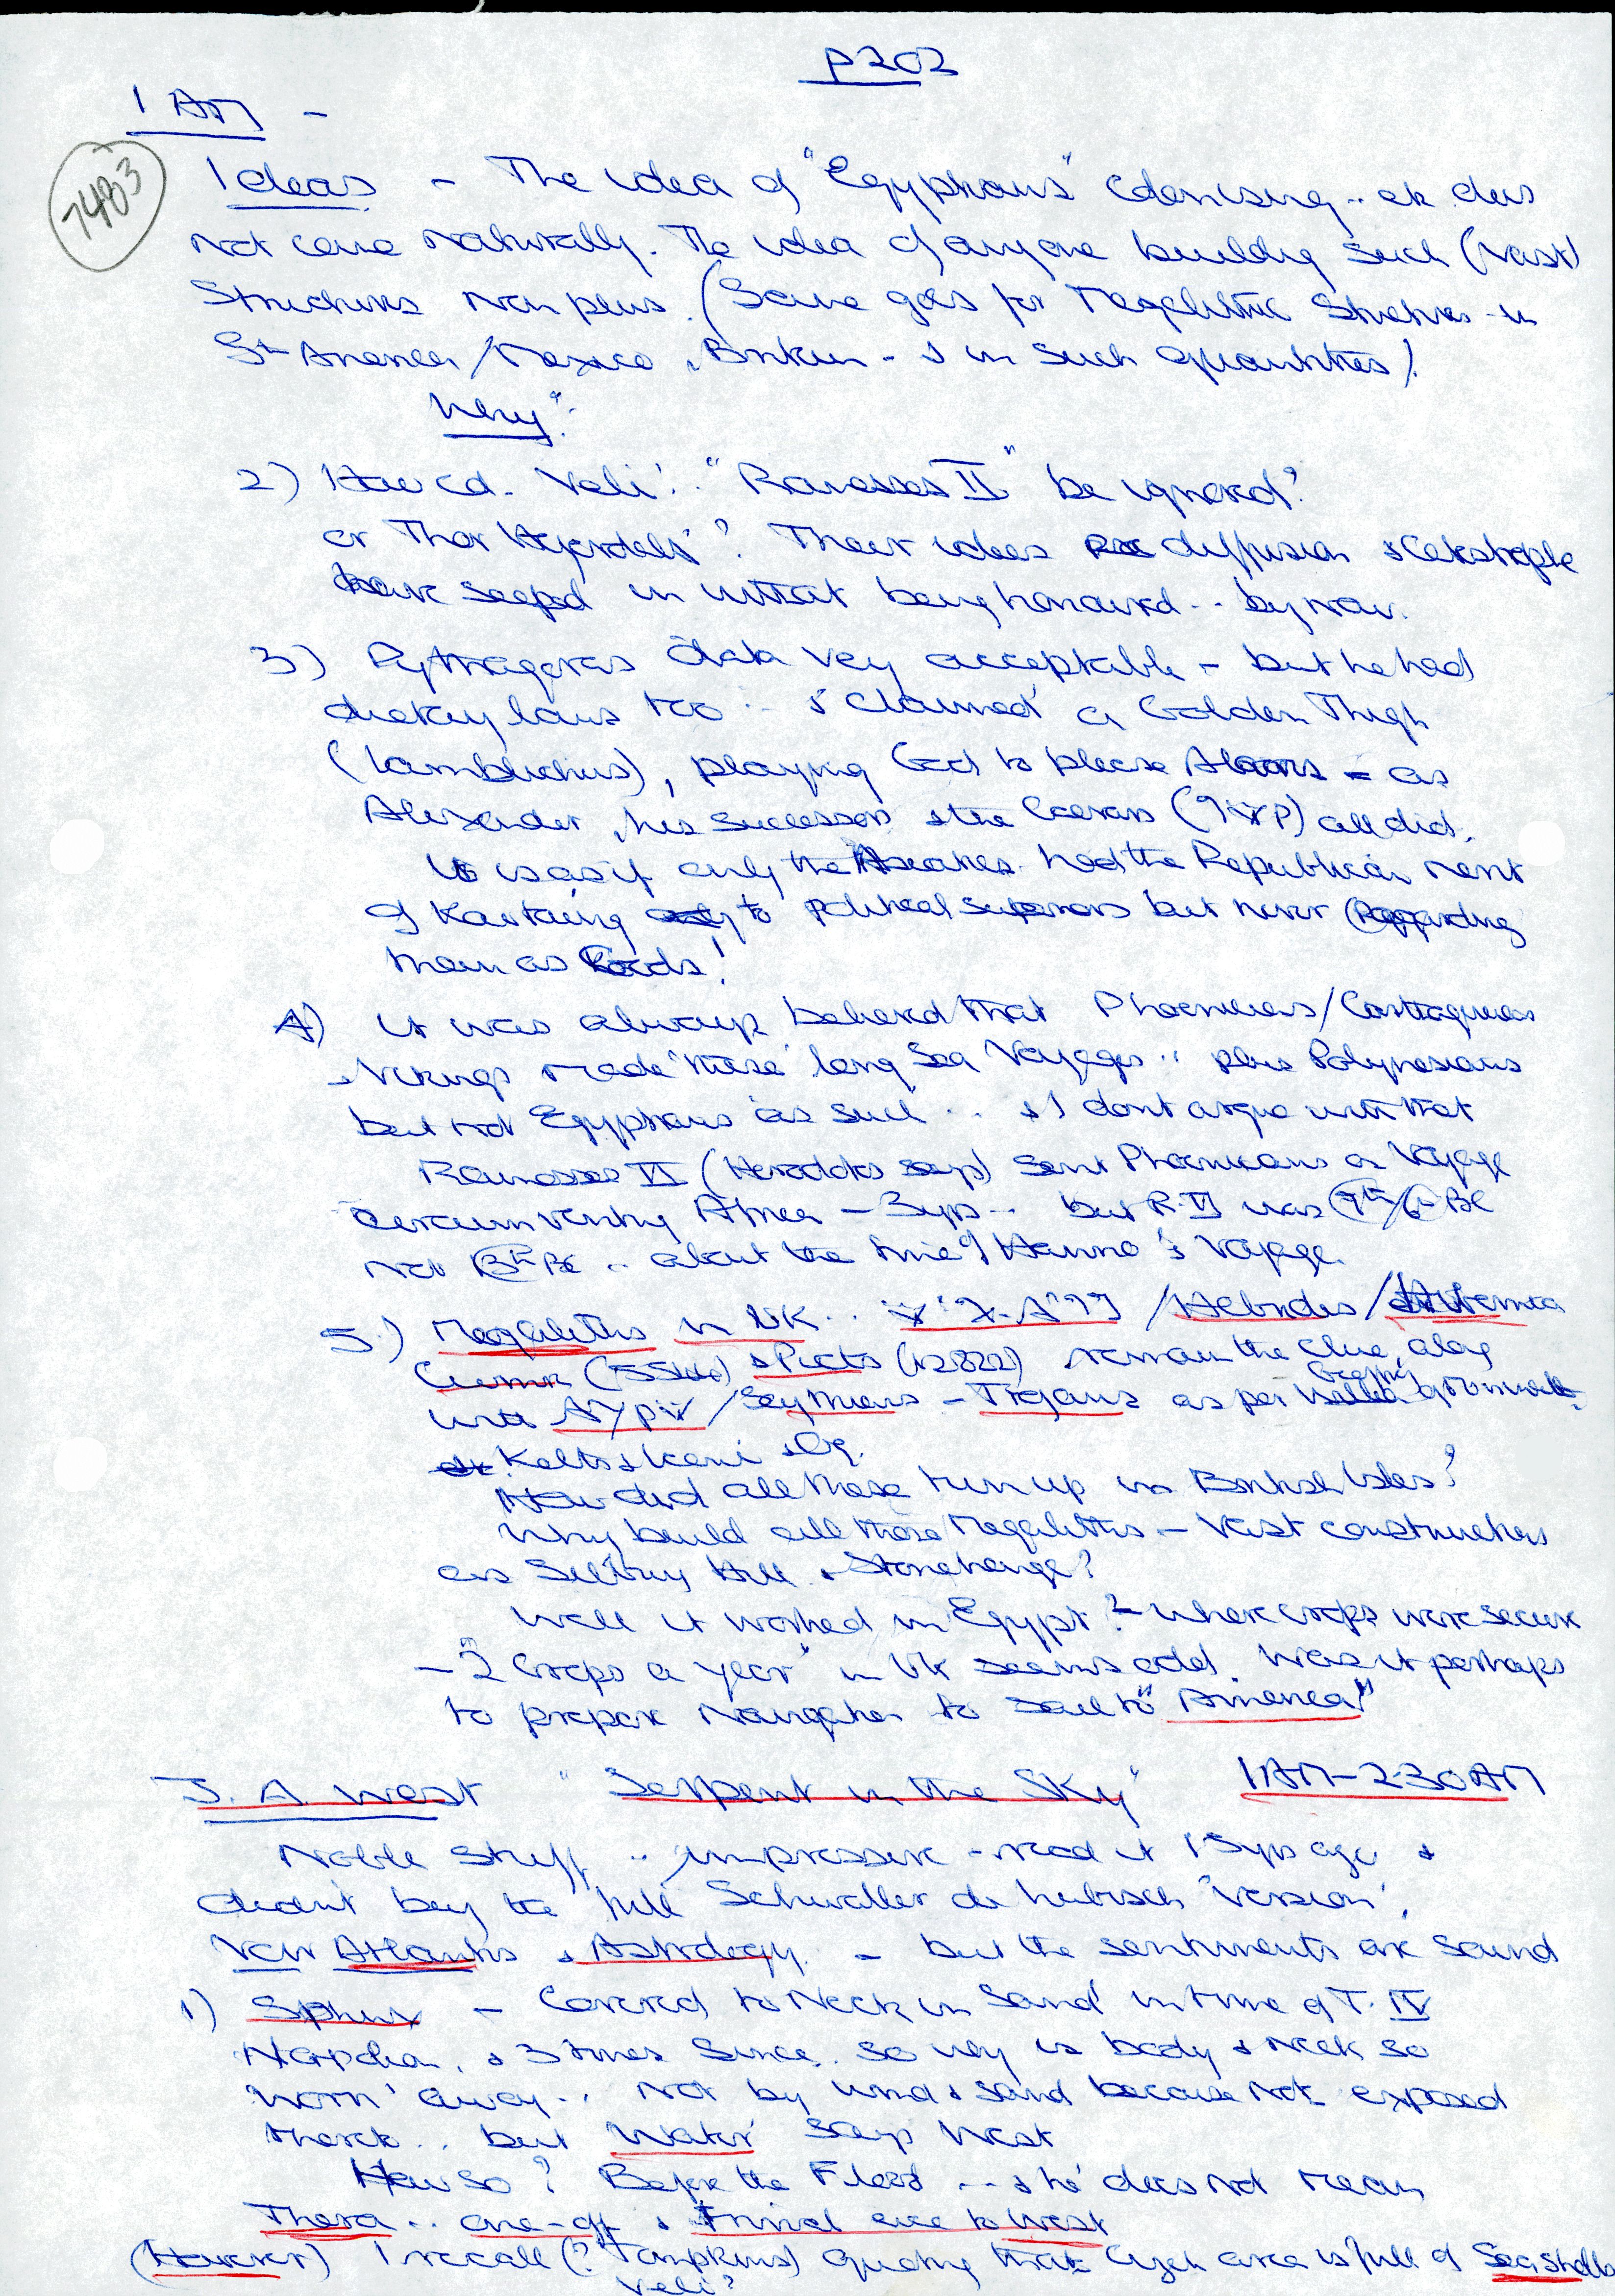 p202
1 AM -
7483
Ideas - The idea of "Egyptians" Colonising .. etc does
not come naturally. The idea of anyone building such (vast)
Structures non plus. (Same goes for Megalithic Structures in
Sth America / Mexico, Britain - & in such quantities).
Why?
2) How cd. Veli: "Ramesses II" be ignored?
or Thor Heyerdahl? Their ideas re diffusion & Catastrophe
have seeped in without being honoured .. by now.
3) Pythagoras data very acceptable - but he had
dietary laws too .. & 'Claimed' a Golden Thigh
(Iamblichus), playing God to please - as
Alexander, his successors & the Caesars all did.
It is as if only the had the Republican ment
of Kowtowing to political superiors but never Regarding
them as Gods!
4) It was always believed that Phoenicians / Carthaginians
& Vikings made 'these' long Sea Voyages .. plus Polynesians
but not Egyptians as such .. & I dont argue with that
Ramesses II (Herodotos says) sent Phoenicians on Voyage
circumventing Africa - 3 yrs .. but R. II was 7th/6th BC
not 13th BC .. about the time of Hanno's Voyage.
5.) Megaliths in UK .. / Hebrides / Hibernia
& Picts remain the Clue, along
with / Scythians - Trojans as per Geoffrey of Monmouth
Kelts & Iceni & Og.
How did all these turn up in British Isles?
Why build all those Megaliths - Vast constructions
as Silbury Hill & Stonehenge?
Well it worked in Egypt? - where crops were secure
- "2 Crops a year" in UK seems odd. Was it perhaps
to prepare Navigation to sail to "America!"
J. A. West "Serpent in the Sky" 1AM-2.30AM
Noble Stuff .. impressive - read it 15 yrs ago &
didn't buy the full Schwaller de Lubicz 'version'.
Atlantis & Astrology - but the sentiments are sound
1) Sphinx - Covered to Neck in 'Sand' in time of T. IV
& 3 times Since. so why is body & neck so
'worn' away .. not by wind & sand because not exposed
thereto .. but Water says West
How so? Before the Flood .. & he does not mean
Thera .. one-off & trivial acc to West
(However) I recall (? Tompkins) quoting that Gizeh area is full of Sea Shells
Veli?